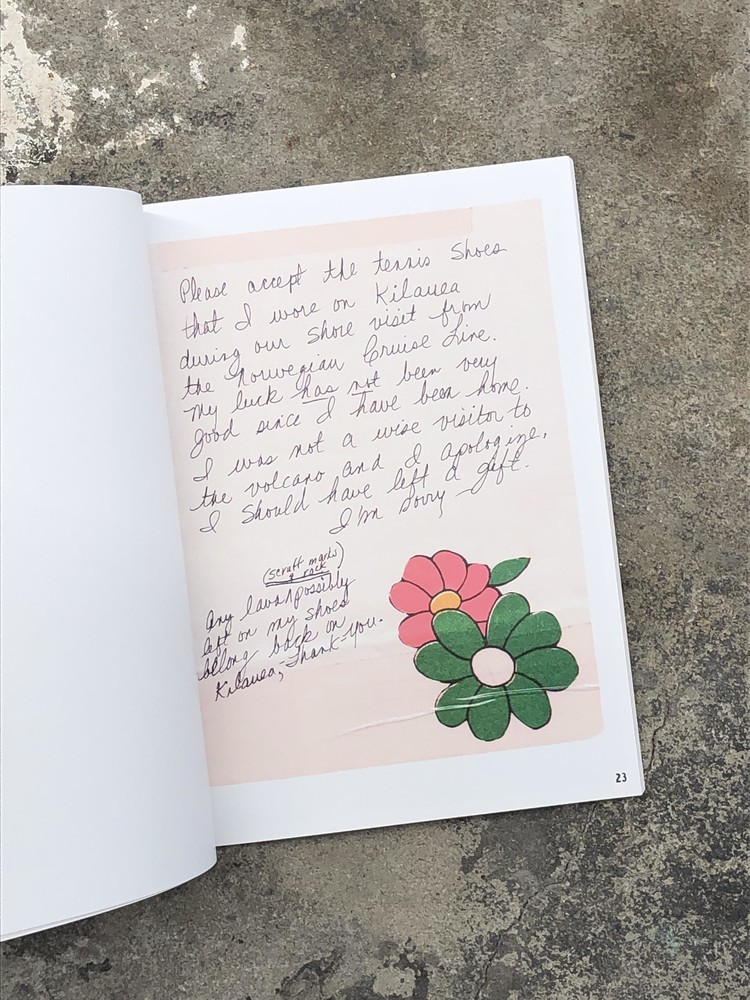 Please accept the tennis Shoes
that I wore on Kilauea
during our Shore visit from
the Norwegian Cruise Line.
My luck has not been very
good since I have been home.
I was not a wise visitor to
the volcano and I apologize,
I Should have left a gift.
I'm Sorry
(scruff marks
& rock)
Any lava possibly
left on my shoes
belong back in
Kilauea, Thank You.
23